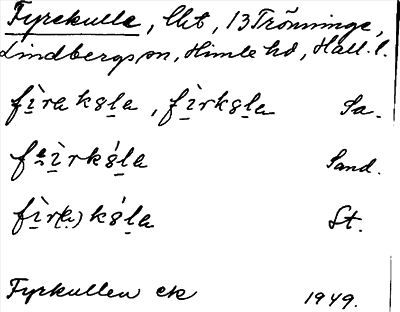 Fyrekulla, lht, 13 Trönninge,
Lindbergs sn, Himle hd, Hall. l.
fìraks̀la, fìrksla Sa.
Sand.
St.
Fyrkullen ek 1949.